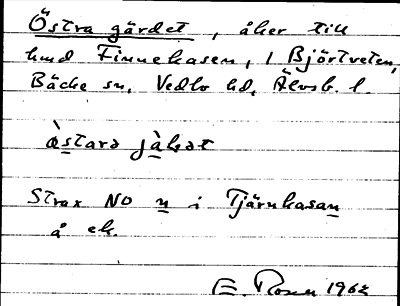 Östra gärdet, åker till
hmd Finnekasen, 1 Björtveten,
Bäcke sn, Vedbo hd, Älvsb. l.
östarə jàḷət
Strax NO n i Tjärnkasan
å ek.
E. Rosen 1962